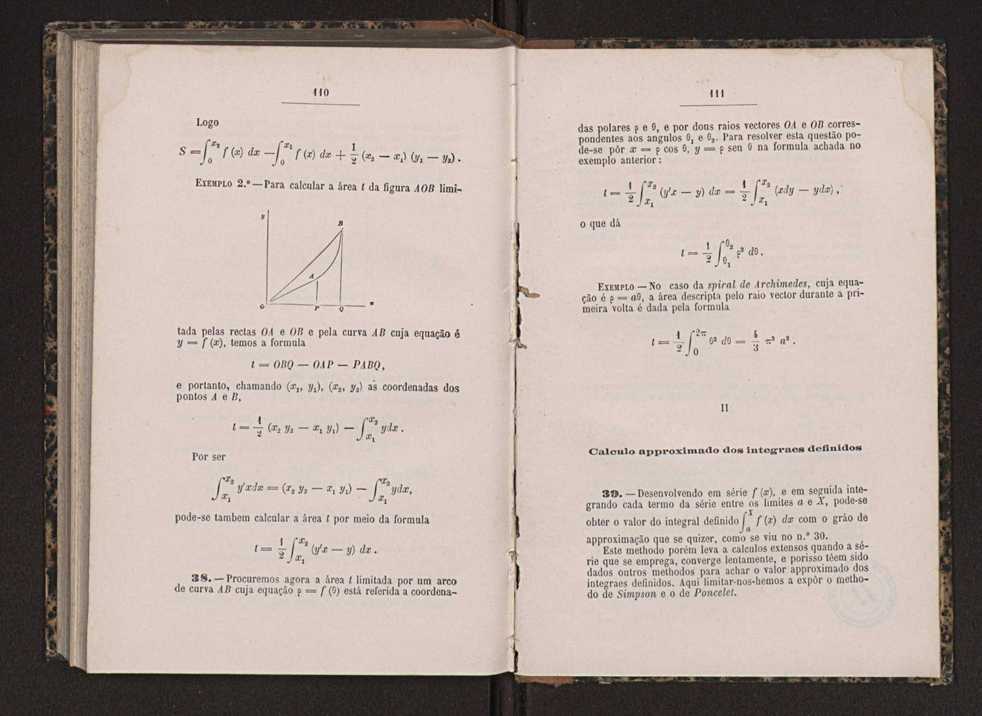 110
Logo
S = ∫₀^{x₂} f (x) dx — ∫₀^{x₁} f (x) dx + 1/2 (x₂ — x₁) (y₁ — y₂).
EXEMPLO 2.º — Para calcular a área t da figura AOB limi-
y
B
A
O
P
Q
x
tada pelas rectas OA e OB e pela curva AB cuja equação é
y = f (x), temos a formula
t = OBQ — OAP — PABQ,
e portanto, chamando (x₁, y₁), (x₂, y₂) as coordenadas dos
pontos A e B,
t = 1/2 (x₂ y₂ — x₁ y₁) — ∫_{x₁}^{x₂} ydx.
Por ser
∫_{x₁}^{x₂} y'xdx = (x₂ y₂ — x₁ y₁) — ∫_{x₁}^{x₂} ydx,
pode-se tambem calcular a área t por meio da formula
t = 1/2 ∫_{x₁}^{x₂} (y'x — y) dx.
38. — Procuremos agora a área t limitada por um arco
de curva AB cuja equação ρ = f (θ) está referida a coordena-
111
das polares ρ e θ, e por dous raios vectores OA e OB corres-
pondentes aos angulos θ₁ e θ₂. Para resolver esta questão po-
de-se pôr x = ρ cos θ, y = ρ sen θ na formula achada no
exemplo anterior:
t = 1/2 ∫_{x₁}^{x₂} (y'x — y) dx = 1/2 ∫_{x₁}^{x₂} (xdy — ydx),
o que dá
t = 1/2 ∫_{θ₁}^{θ₂} ρ² dθ.
EXEMPLO — No caso da spiral de Archimedes, cuja equa-
ção é ρ = aθ, a área descripta pelo raio vector durante a pri-
meira volta é dada pela formula
t = 1/2 ∫₀^{2π} θ² dθ = 4/3 π³ a².
II
Calculo approximado dos integraes definidos
39. — Desenvolvendo em série f (x), e em seguida inte-
grando cada termo da série entre os limites a e X, pode-se
obter o valor do integral definido ∫_a^X f (x) dx com o gráo de
approximação que se quizer, como se viu no n.º 30.
Este methodo porém leva a calculos extensos quando a sé-
rie que se emprega, converge lentamente, e porisso têem sido
dados outros methodos para achar o valor approximado dos
integraes definidos. Aqui limitar-nos-hemos a expôr o metho-
do de Simpson e o de Poncelet.